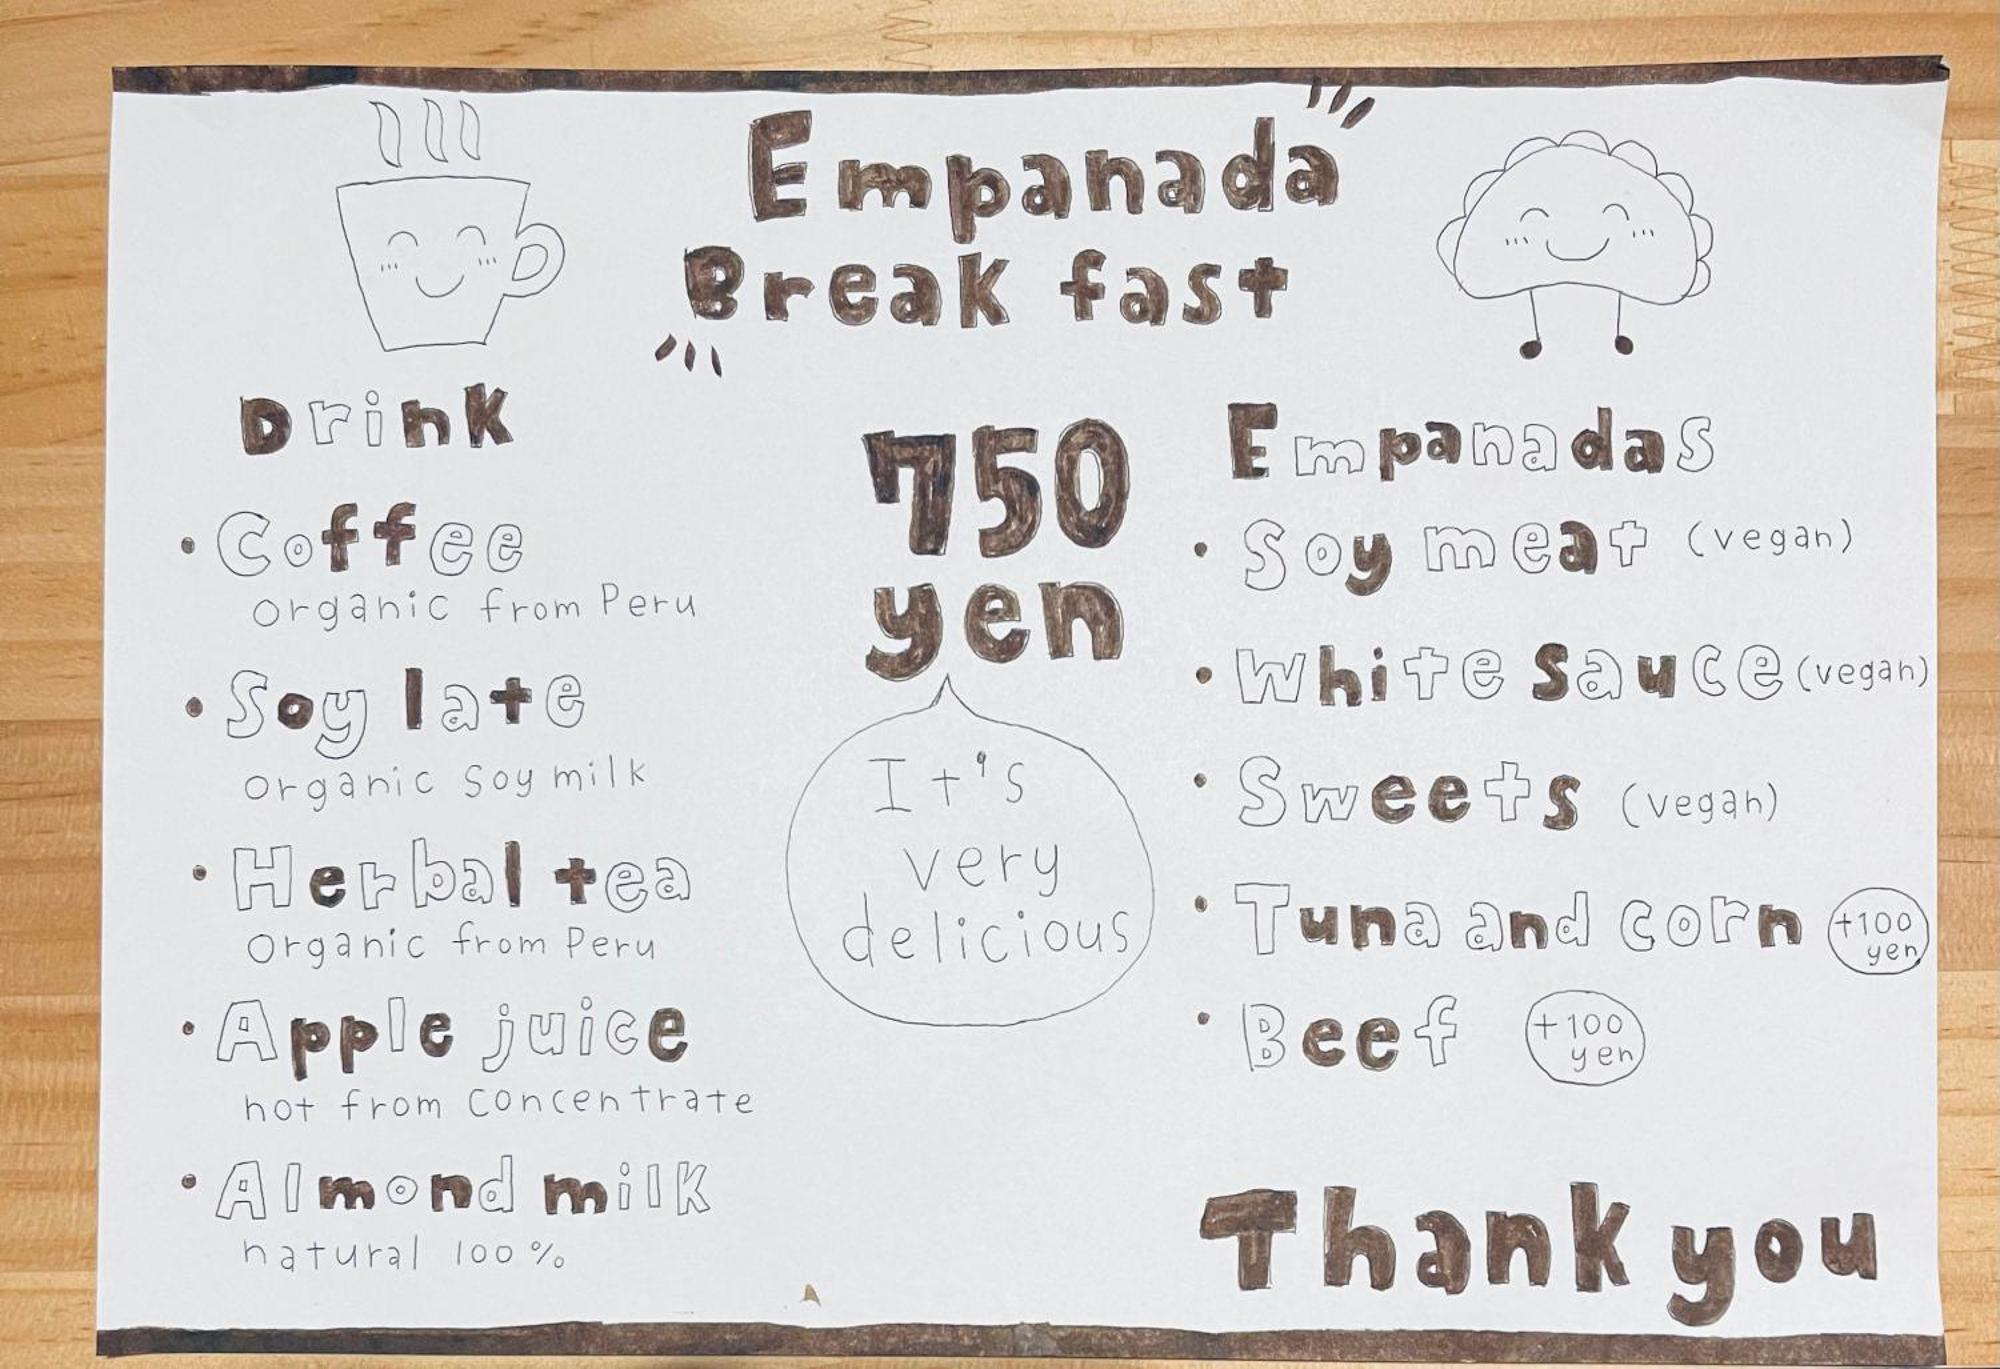 Empanada
Break fast
Drink
• Coffee
organic from Peru
• Soy late
organic soy milk
• Herbal tea
organic from Peru
• Apple juice
not from concentrate
• Almond milk
natural 100%
750
yen
It's
very
delicious
Empanadas
• Soy meat (vegan)
• White sauce (vegan)
• Sweets (vegan)
• Tuna and corn +100 yen
• Beef +100 yen
Thank you